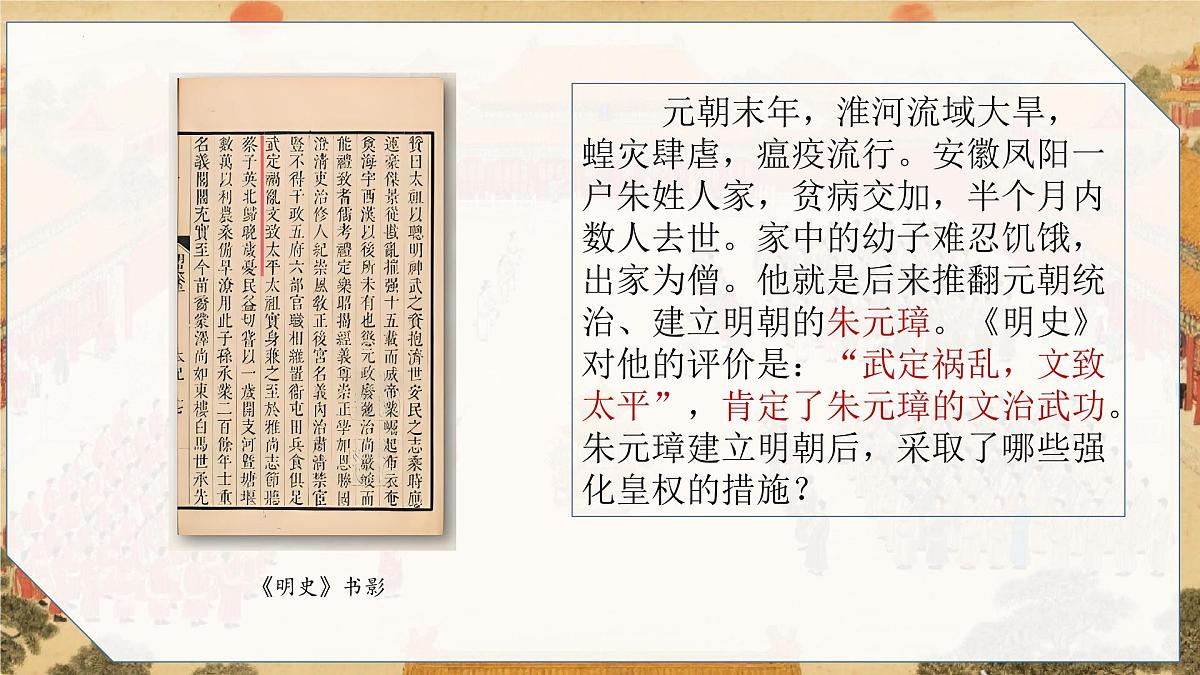 元朝末年，淮河流域大旱，
蝗灾肆虐，瘟疫流行。安徽凤阳一
户朱姓人家，贫病交加，半个月内
数人去世。家中的幼子难忍饥饿，
出家为僧。他就是后来推翻元朝统
治、建立明朝的朱元璋。《明史》
对他的评价是：“武定祸乱，文致
太平”，肯定了朱元璋的文治武功。
朱元璋建立明朝后，采取了哪些强
化皇权的措施？
贊曰太祖以聰明神武之資抱濟世安民之志乘時應
運豪傑景從戡亂摧强十五載而成帝業崛起布衣奄
奠海宇西漢以後所未有也懲元政廢弛治尚嚴峻而
能禮致耆儒考禮定樂昭揭經義尊崇正學加恩勝國
澄清吏治修人紀崇風敎正後宮名義內治肅清禁宦
豎不得干政五府六部官職相維置衞屯田兵食俱足
武定禍亂文致太平太祖實身兼之至於雅尚志節聽
蔡子英北歸晚歲憂民益切嘗以一歲開支河暨塘堰
數萬以利農桑備旱潦用此子孫承業二百餘年士重
名義閭閻充實至今苗裔蒙澤尚如東樓白馬世承先
《明史》书影